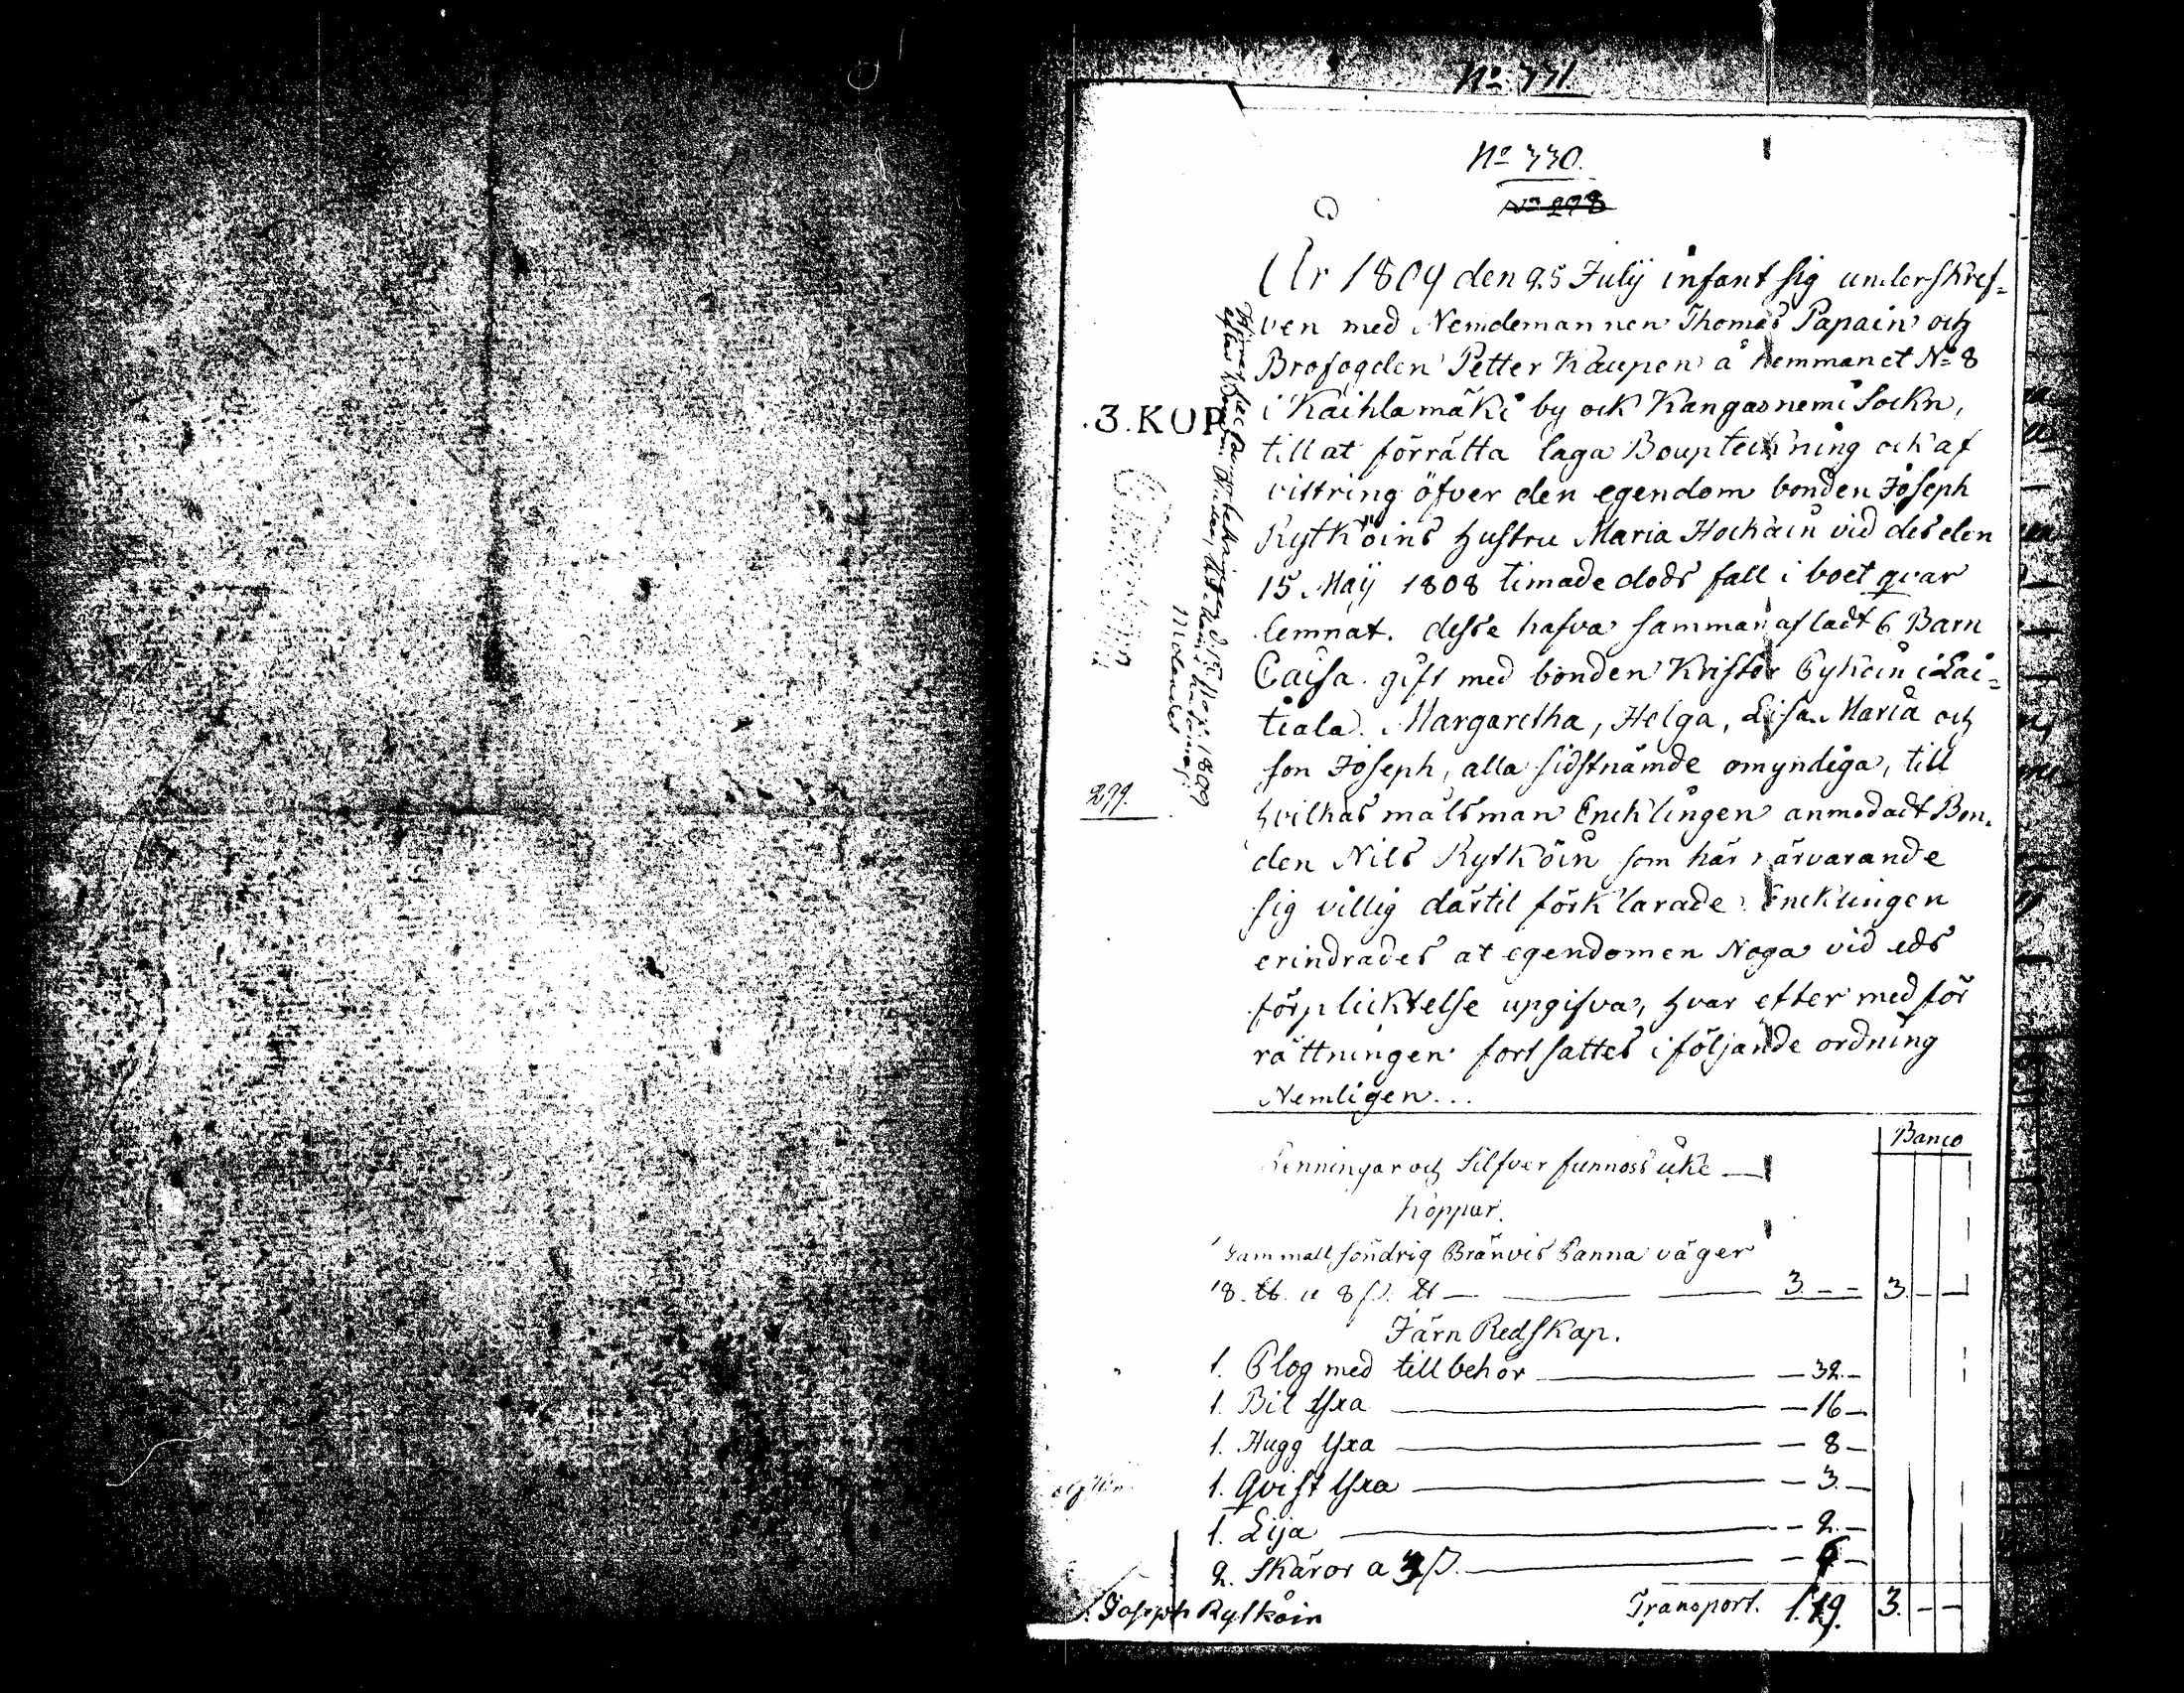 No 331.
No 330.
No 298
År 1809 den 25 Julÿ infant sig underskref-
ven med Nemdemannen Thomas Papain och
Brofogden Petter Kaupen å hemmanet No 8
i Kaihlamäki by ock Kangasnemi Sockn,
till at förrätta laga Boupteckning ock af
vittring öfver den egendom bonden Joseph
Rytköins hustru Maria Hockain vid des den
15 Maÿ 1808 timade döds fall i boet qvar
lemnat. desse hafva samman afladt 6 Barn
Caisa gift med bonden Kristor Pykäin i Lai-
tiala. Margaretha, Helga, Lisa Maria och
son Joseph, alla sidstnämde omyndiga, till
hvilkas målsman Encklingen anmodadt Bon-
den Nils Rytköin som här närvarande
sig villig därtil förklarade. Encklingen
erindrades at egendomen Noga vid eds
förplicktelse upgifva, hvar efter med för
rättningen fortsattes i följande ordning
Nemligen...
3. KOP
1809
299.
Banco
Penningar och Silfver funnoss icke
Koppar.
1 Gammall söndrig Bränvis Panna väger
18. ℔ a 8 s. ℔ 3. - - 3. - -
Järn Redskap.
1. Plog med tillbehör - 32. -
1. Bil Yxa - 16 -
1. Hugg Yxa - 8 -
1. Qvist Yxa - 3. -
1. Lija - 2. -
2. Skäror a 3 s. - 6 -
Transport. 1.19. 3. - -
Joseph Rytköin